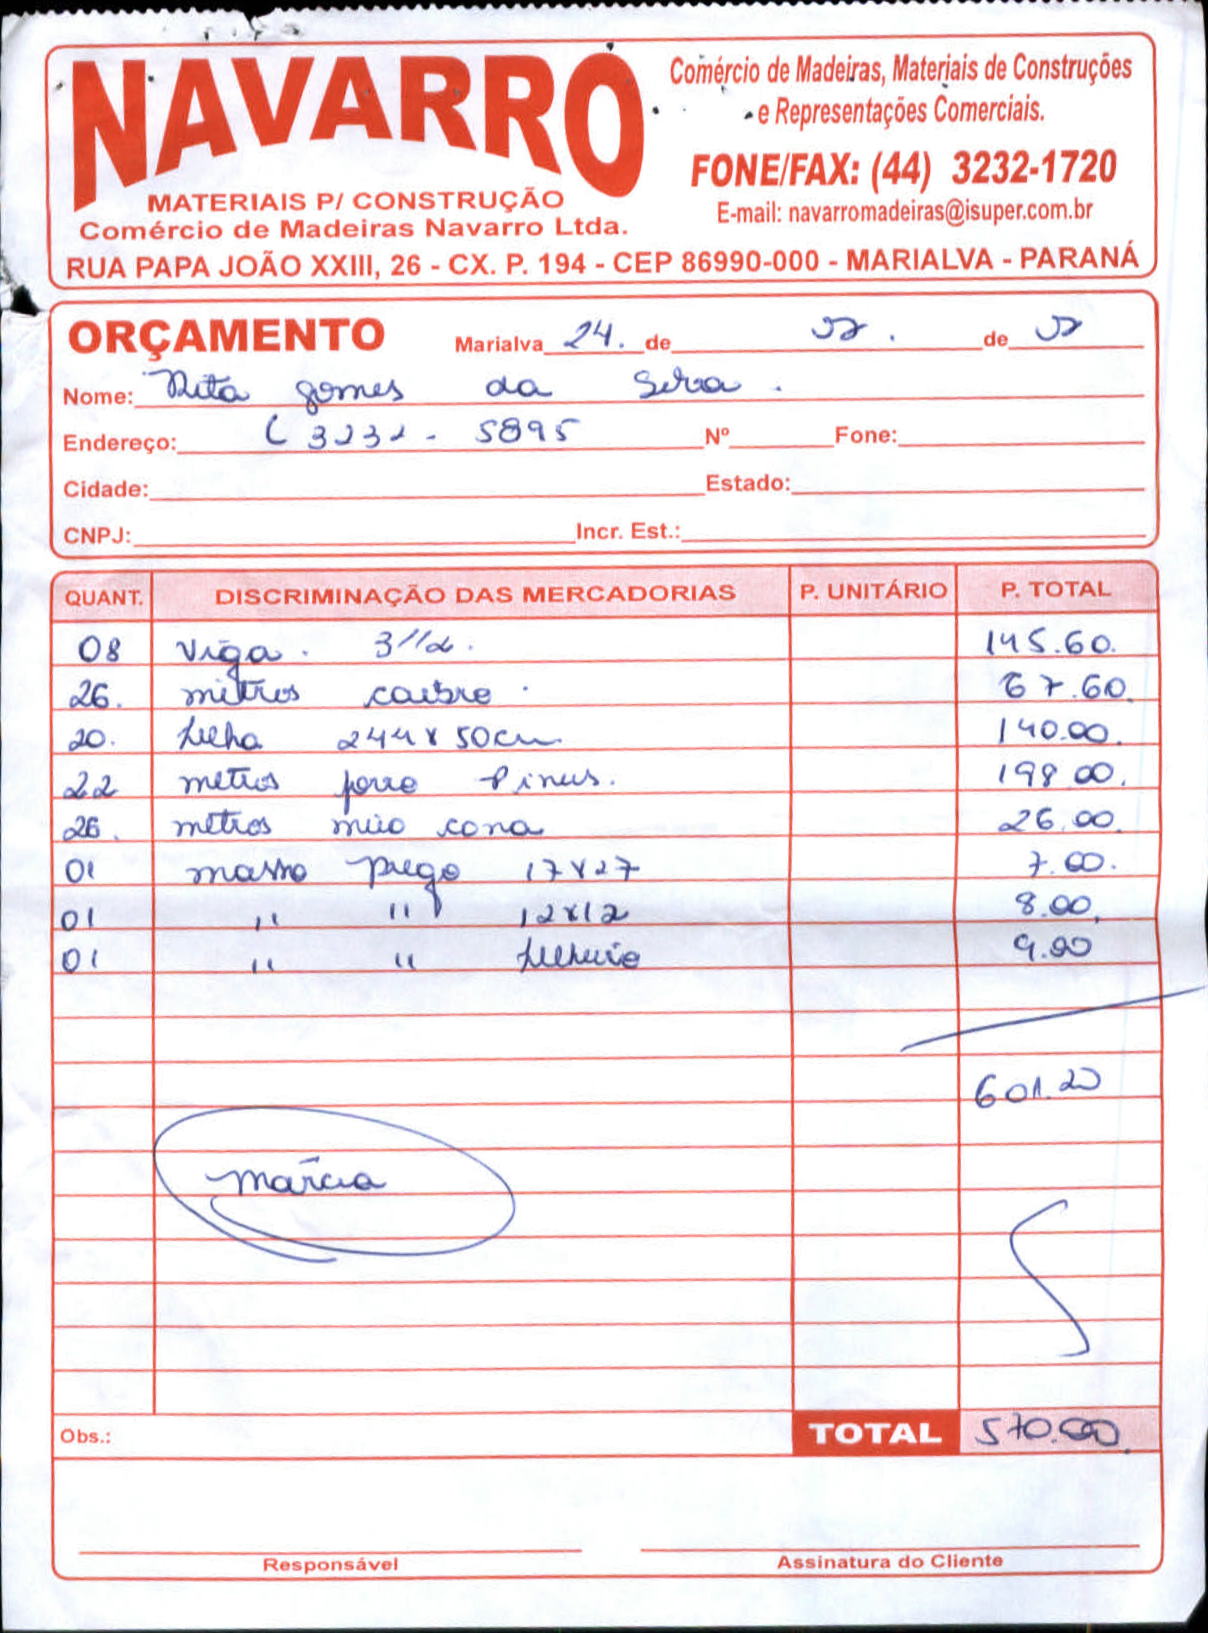 NAVARRO
MATERIAIS P/ CONSTRUÇÃO
Comércio de Madeiras Navarro Ltda.
Comércio de Madeiras, Materiais de Construções
e Representações Comerciais.
FONE/FAX: (44) 3232-1720
E-mail: navarromadeiras@isuper.com.br
RUA PAPA JOÃO XXIII, 26 - CX. P. 194 - CEP 86990-000 - MARIALVA - PARANÁ
ORÇAMENTO Marialva 24. de de
Nome: Rita gomes da Silva.
Endereço: ( 3232 - 5895 Nº Fone:
Cidade: Estado:
CNPJ: Incr. Est.:
QUANT. DISCRIMINAÇÃO DAS MERCADORIAS P. UNITÁRIO P. TOTAL
08 Viga. 145.60.
26. metros caibro. 67.60.
20. telha 244 x 50cm 140.00.
22 metros forro Pinus. 198.00.
26. metros meio cana 26.00.
01 masso prego 17x27 7.00.
01 " " 12x12 8.00.
01 " " telheiro 9.00
601.20
márcia
Obs.: TOTAL 570.00.
Responsável Assinatura do Cliente